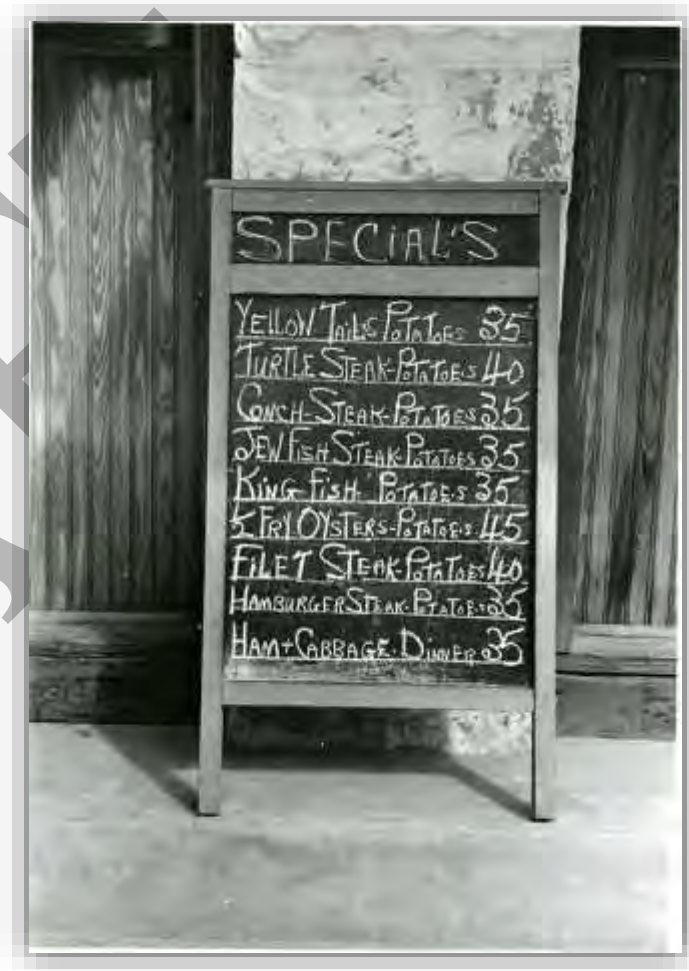 SPECiAL'S
YELLOW TAILS POTATOES 35
TURTLE STEAK-POTATOES 40
CONCH-STEAK-POTATOES 35
JEW FISH STEAK-POTATOES 35
KING FISH POTATOES 35
½ FRY OYSTERS-POTATOES 45
FiLET STEAK-POTATOES 40
HAMBURGER STEAK-POTATOES 35
HAM + CABBAGE-DINNER 35